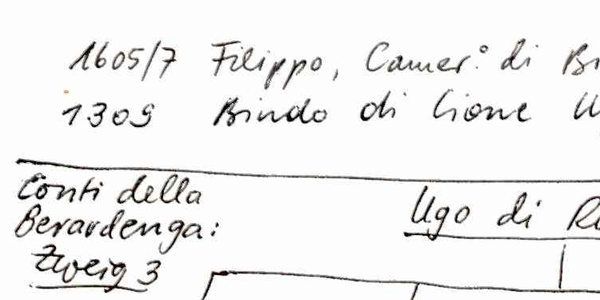 1605/7 Filippo, Camer.° di
1309 Bindo di Cione
Conti della
Berardenga:
Zweig 3
Ugo di